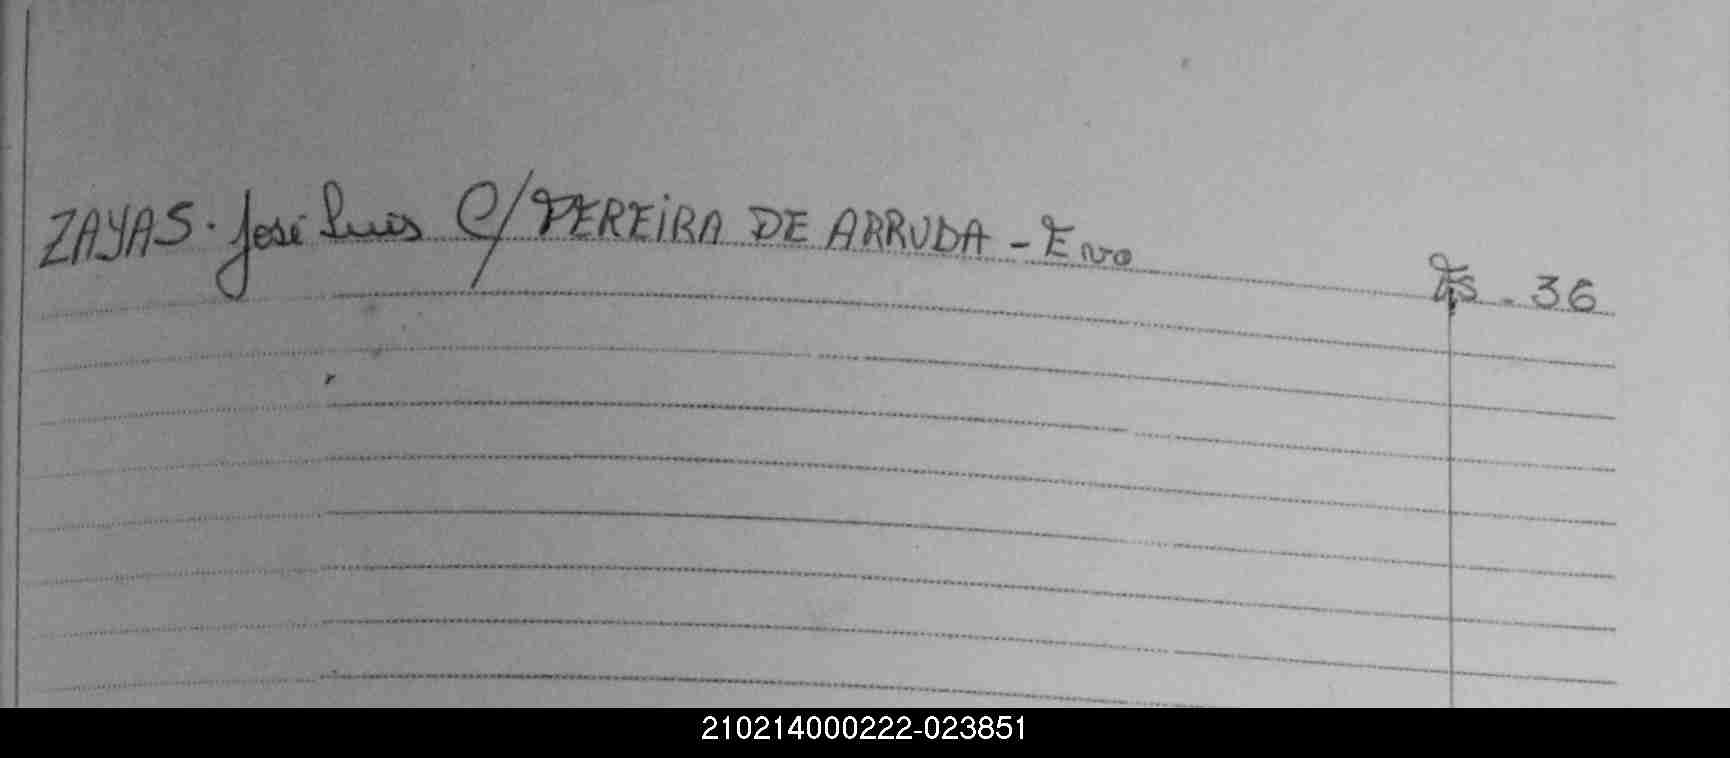 ZAYAS. José Luis C/ PEREIRA DE ARRUDA - Eno Fs - 36
210214000222-023851